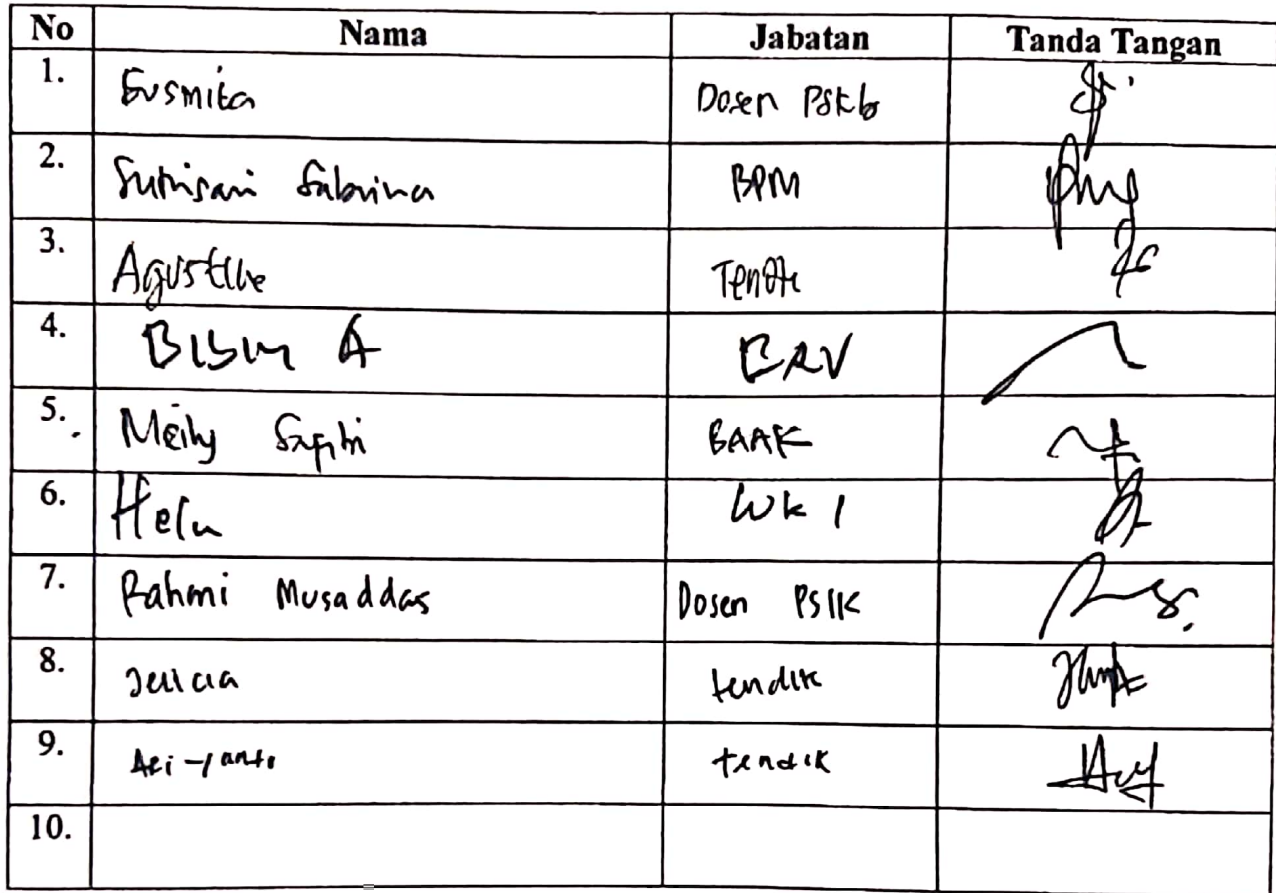 No Nama Jabatan Tanda Tangan
1. Eusmita Dosen PSKb
2. Sutrisari Sabrina BPM
3. Agustine
4. A
5. Meily Safitri BAAK
6. WK 1
7. Rahmi Musaddas Dosen PSIK
8. tendik
9. Ari yanto tendik
10.